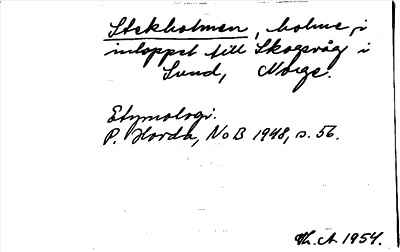 Stekholmen, holme i
inloppet till Skogsvåg i
Sund, Norge.
Etymologi.
P. Hovda, NoB 1948, s. 56.
Th. A. 1954.